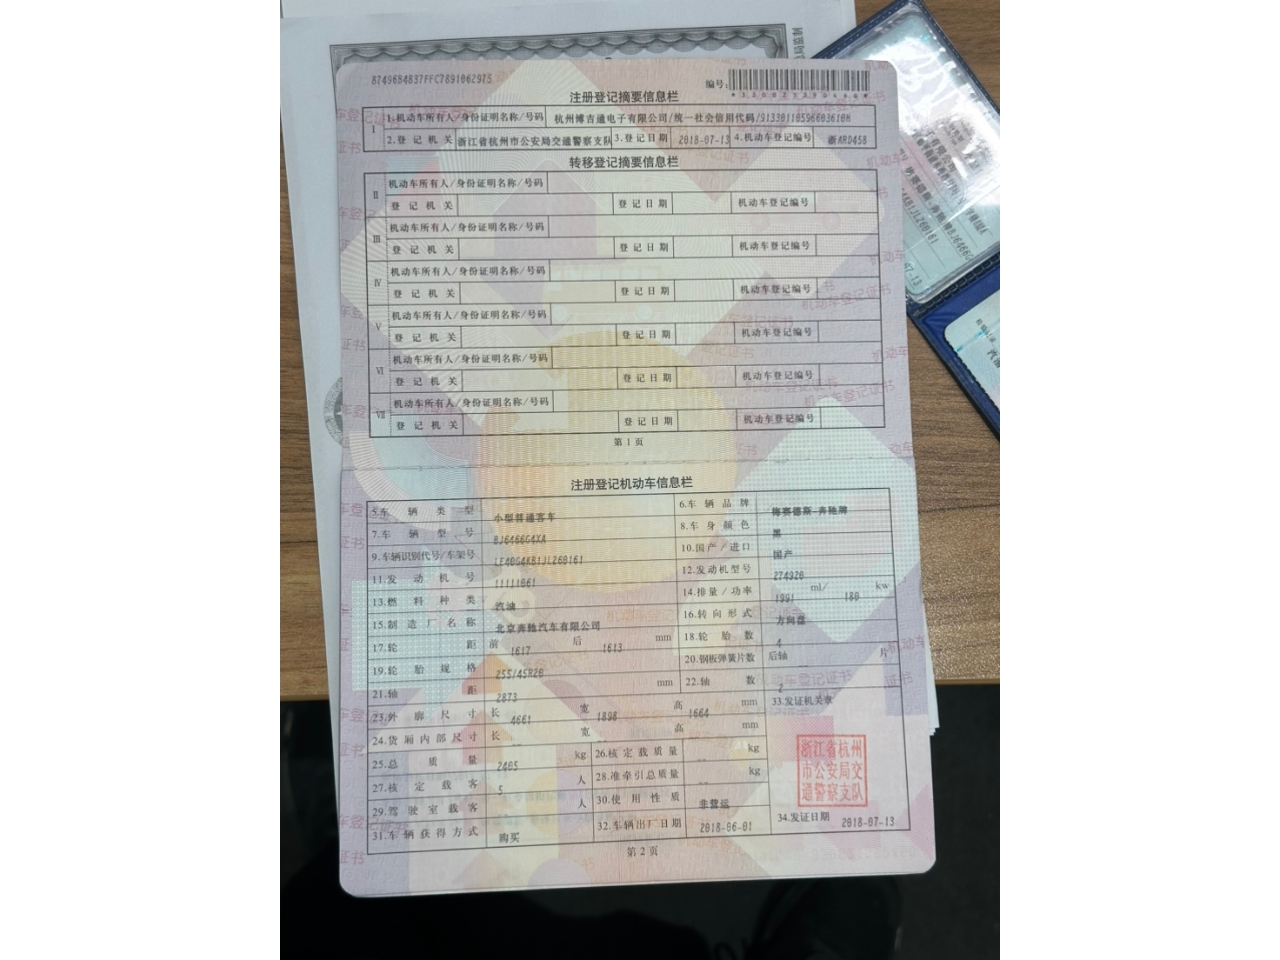 8749684837FFC7891062975
编号:
注册登记摘要信息栏
I 1.机动车所有人/身份证明名称/号码 杭州博吉通电子有限公司/统一社会信用代码/91330110596603610M
2.登记机关 浙江省杭州市公安局交通警察支队 3.登记日期 2018-07-13 4.机动车登记编号 浙ARD458
转移登记摘要信息栏
II 机动车所有人/身份证明名称/号码
登记机关 登记日期 机动车登记编号
III 机动车所有人/身份证明名称/号码
登记机关 登记日期 机动车登记编号
IV 机动车所有人/身份证明名称/号码
登记机关 登记日期 机动车登记编号
V 机动车所有人/身份证明名称/号码
登记机关 登记日期 机动车登记编号
VI 机动车所有人/身份证明名称/号码
登记机关 登记日期 机动车登记编号
VII 机动车所有人/身份证明名称/号码
登记机关 登记日期 机动车登记编号
第1页
注册登记机动车信息栏
5.车辆类型 小型普通客车 6.车辆品牌 梅赛德斯-奔驰牌
7.车辆型号 BJ6466G4XA 8.车身颜色 黑
9.车辆识别代号/车架号 LE40G4KB1JL268161 10.国产/进口 国产
11.发动机号 11111661 12.发动机型号 274920
13.燃料种类 汽油 14.排量/功率 1991 ml/ 180 kw
15.制造厂名称 北京奔驰汽车有限公司 16.转向形式 方向盘
17.轮距 前 1617 后 1613 mm 18.轮胎数 4
19.轮胎规格 255/45R20 20.钢板弹簧片数 后轴 片
21.轴距 2873 mm 22.轴数 2
23.外廓尺寸 长 4661 宽 1898 高 1664 mm 33.发证机关章
24.货厢内部尺寸 长 宽 高 mm
25.总质量 2405 kg 26.核定载质量 -- kg
27.核定载客 5 人 28.准牵引总质量 -- kg
29.驾驶室载客 人 30.使用性质 非营运
31.车辆获得方式 购买 32.车辆出厂日期 2018-06-01 34.发证日期 2018-07-13
浙江省杭州
市公安局交
通警察支队
第2页